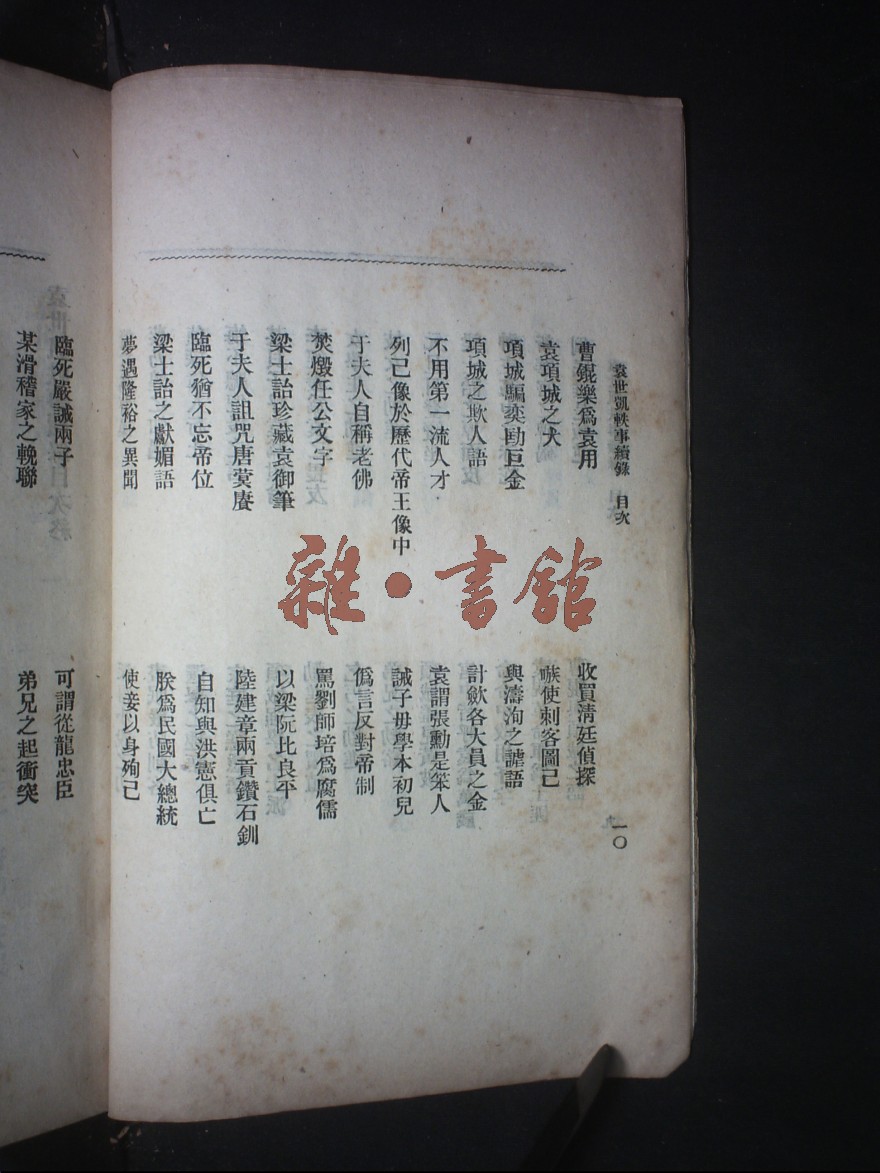 袁世凱軼事續錄 目次
一〇
曹錕樂爲袁用
收買清廷偵探
袁項城之犬
嗾使刺客圖己
項城騙奕劻巨金
與濤洵之謔語
項城之欺人語
計斂各大員之金
不用第一流人才
袁謂張勳是笨人
列己像於歷代帝王像中
誡子毋學本初兒
于夫人自稱老佛
僞言反對帝制
焚燬任公文字
罵劉師培爲腐儒
梁士詒珍藏袁御筆
以梁阮比良平
于夫人詛咒唐蓂賡
陸建章兩貢鑽石釧
臨死猶不忘帝位
自知與洪憲俱亡
梁士詒之獻媚語
朕爲民國大總統
夢遇隆裕之異聞
使妾以身殉己
臨死嚴誡兩子
可謂從龍忠臣
某滑稽家之輓聯
弟兄之起衝突
雜·書館